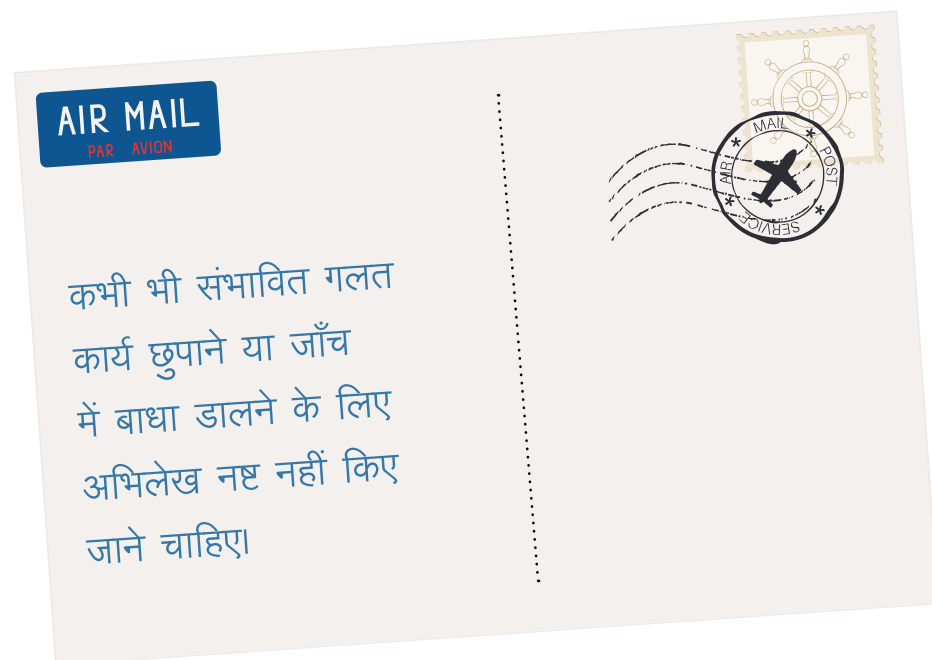 AIR MAIL
PAR AVION
MAIL
AIR
POST
SERVICE
कभी भी संभावित गलत
कार्य छुपाने या जाँच
में बाधा डालने के लिए
अभिलेख नष्ट नहीं किए
जाने चाहिए।